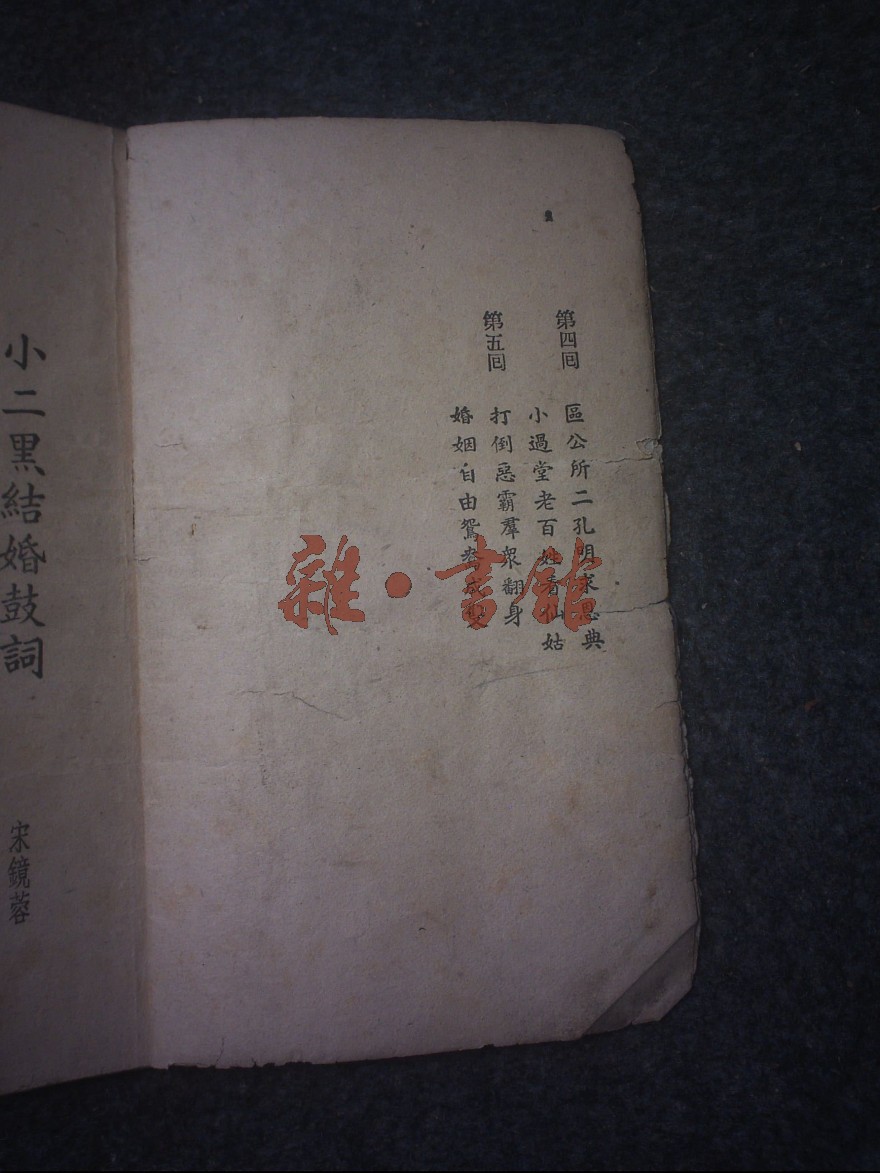 第四囘
區公所二孔明求恩典
小過堂老百姓看仙姑
第五囘
打倒惡霸羣衆翻身
婚姻自由鴛鴦成雙
小二黑結婚鼓詞
宋鏡蓉
雜·書館